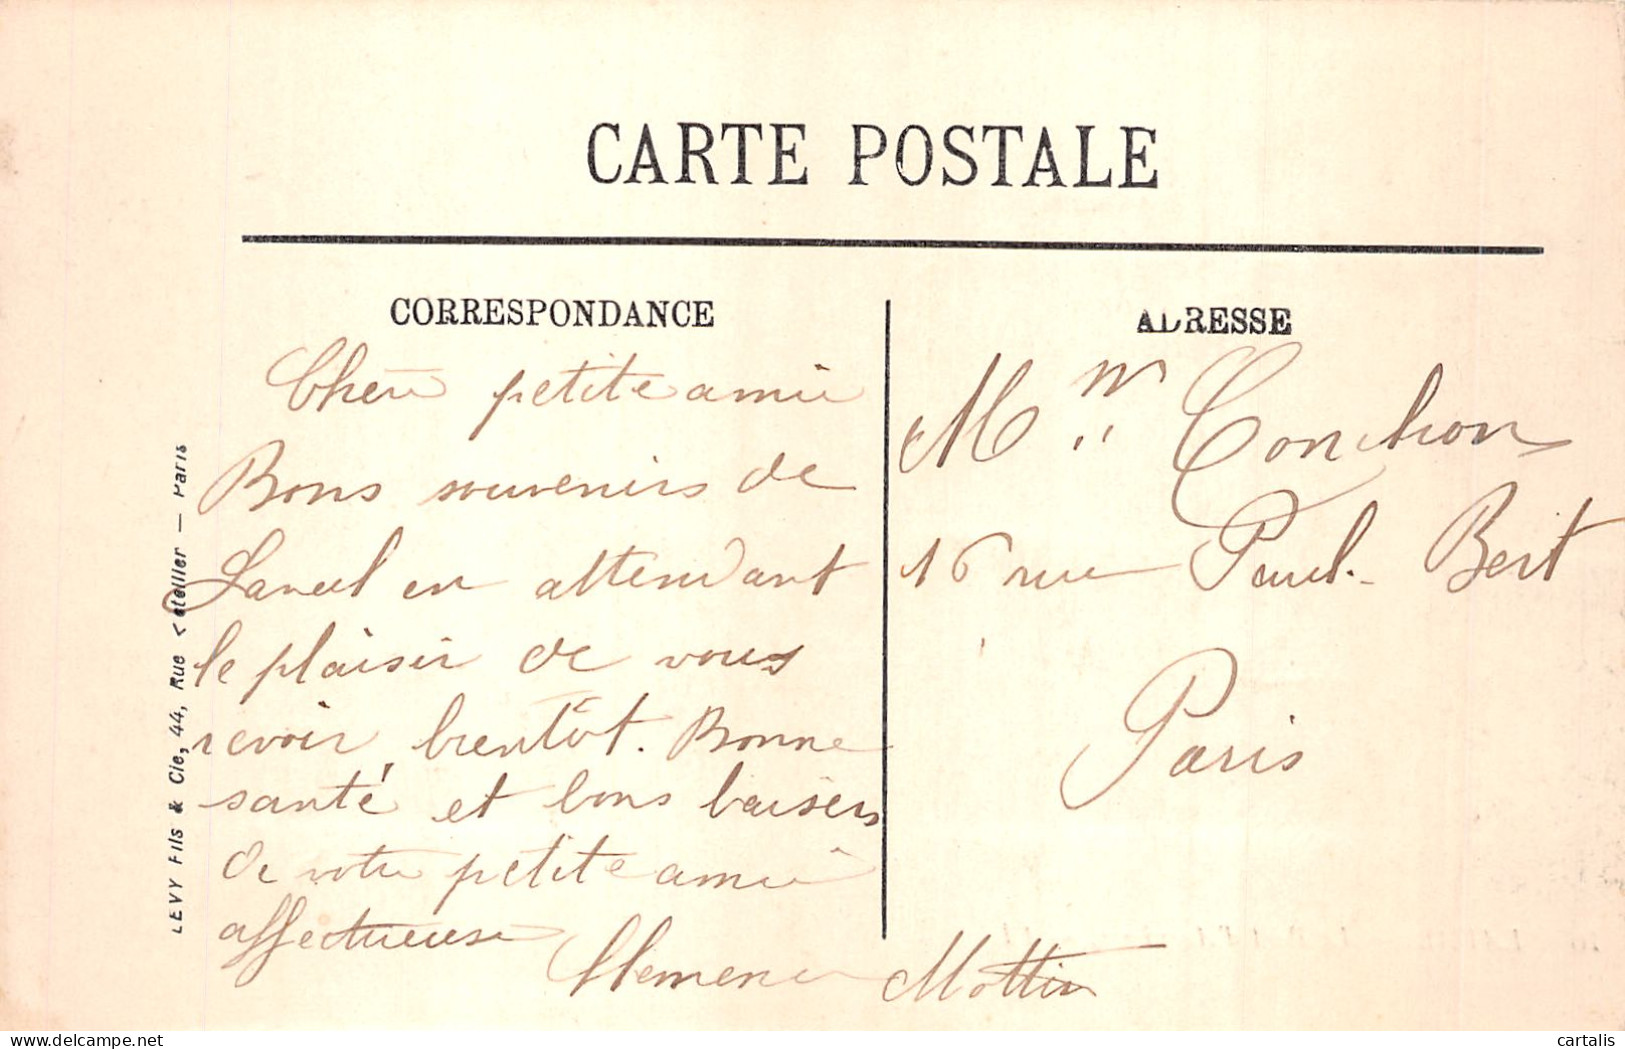 CARTE POSTALE
CORRESPONDANCE
Chère petite amie
Bons souvenirs de
en attendant
le plaisir de vous
revoir, bientôt. Bonne
santé et bons baisers
de votre petite amie
affectueuse
Clémence Mottin
ADRESSE
Conchon
16 rue Paul-Bert
Paris
LEVY Fils & Cie, 44, Rue Letellier — Paris
delcampe.net
cartalis